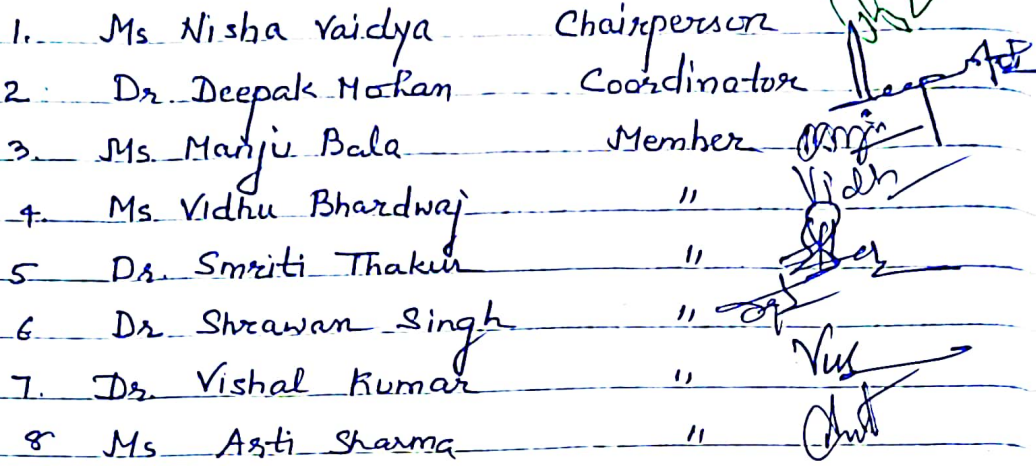 1. Ms Nisha Vaidya Chairperson
2. Dr. Deepak Mohan Coordinator
3. Ms. Manju Bala Member
4. Ms. Vidhu Bhardwaj "
5 Dr. Smriti Thakur "
6 Dr Shrawan Singh "
7. Dr. Vishal Kumar "
8 Ms Arti Sharma "